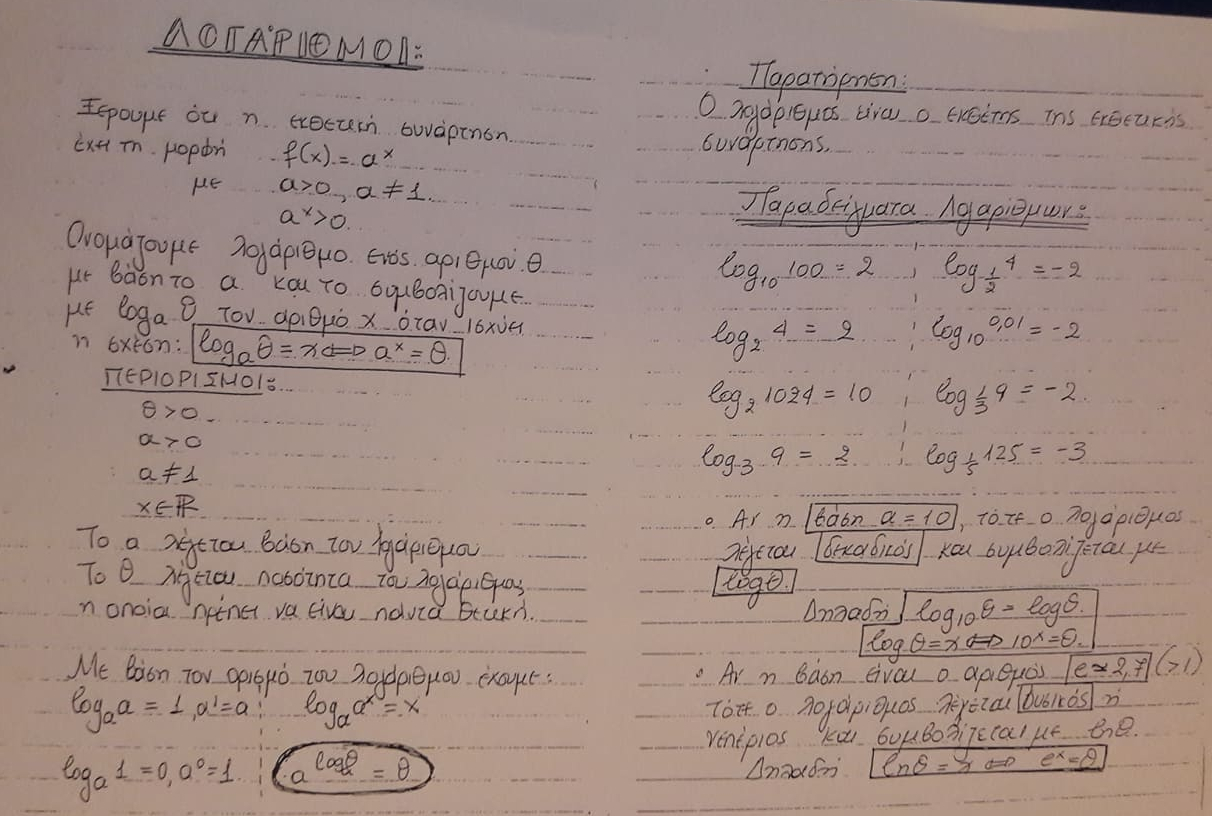 ΛΟΓΑΡΙΘΜΟΙ:
Ξέρουμε ότι η εκθετική συνάρτηση
έχει τη μορφή f(x) = aˣ
με a>0, a≠1.
aˣ>0.
Ονομάζουμε λογάριθμο ενός αριθμού θ
με βάση το a και το συμβολίζουμε
με logₐθ τον αριθμό x όταν ισχύει
η σχέση: logₐθ = x ⟺ aˣ = θ.
ΠΕΡΙΟΡΙΣΜΟΙ:
θ>0.
a>0
a≠1
x∈ℝ
Το a λέγεται βάση του λογάριθμου
Το θ λέγεται ποσότητα του λογάριθμος
η οποία πρέπει να είναι πάντα θετική.
Με βάση τον ορισμό του λογάριθμου έχουμε:
logₐa = 1, a¹=a logₐaˣ = x
logₐ1 = 0, a⁰=1. a^logₐθ = θ
Παρατήρηση:
Ο λογάριθμος είναι ο εκθέτης της εκθετικής
συνάρτησης.
Παραδείγματα Λογαρίθμων:
log₁₀100 = 2 log_½ 4 = -2
log₂ 4 = 2 log₁₀ 0,01 = -2
log₂ 1024 = 10 log_⅓ 9 = -2.
log₃ 9 = 2 log_⅕ 125 = -3
• Αν η βάση a=10, τότε ο λογάριθμος
λέγεται δεκαδικός και συμβολίζεται με
logθ.
Δηλαδή log₁₀θ = logθ.
logθ = x ⟺ 10ˣ=θ.
• Αν η βάση είναι ο αριθμός e≃2,7 (>1)
τότε ο λογάριθμος λέγεται φυσικός ή
νεπέριος και συμβολίζεται με lnθ.
Δηλαδή lnθ = x ⟺ eˣ=θ